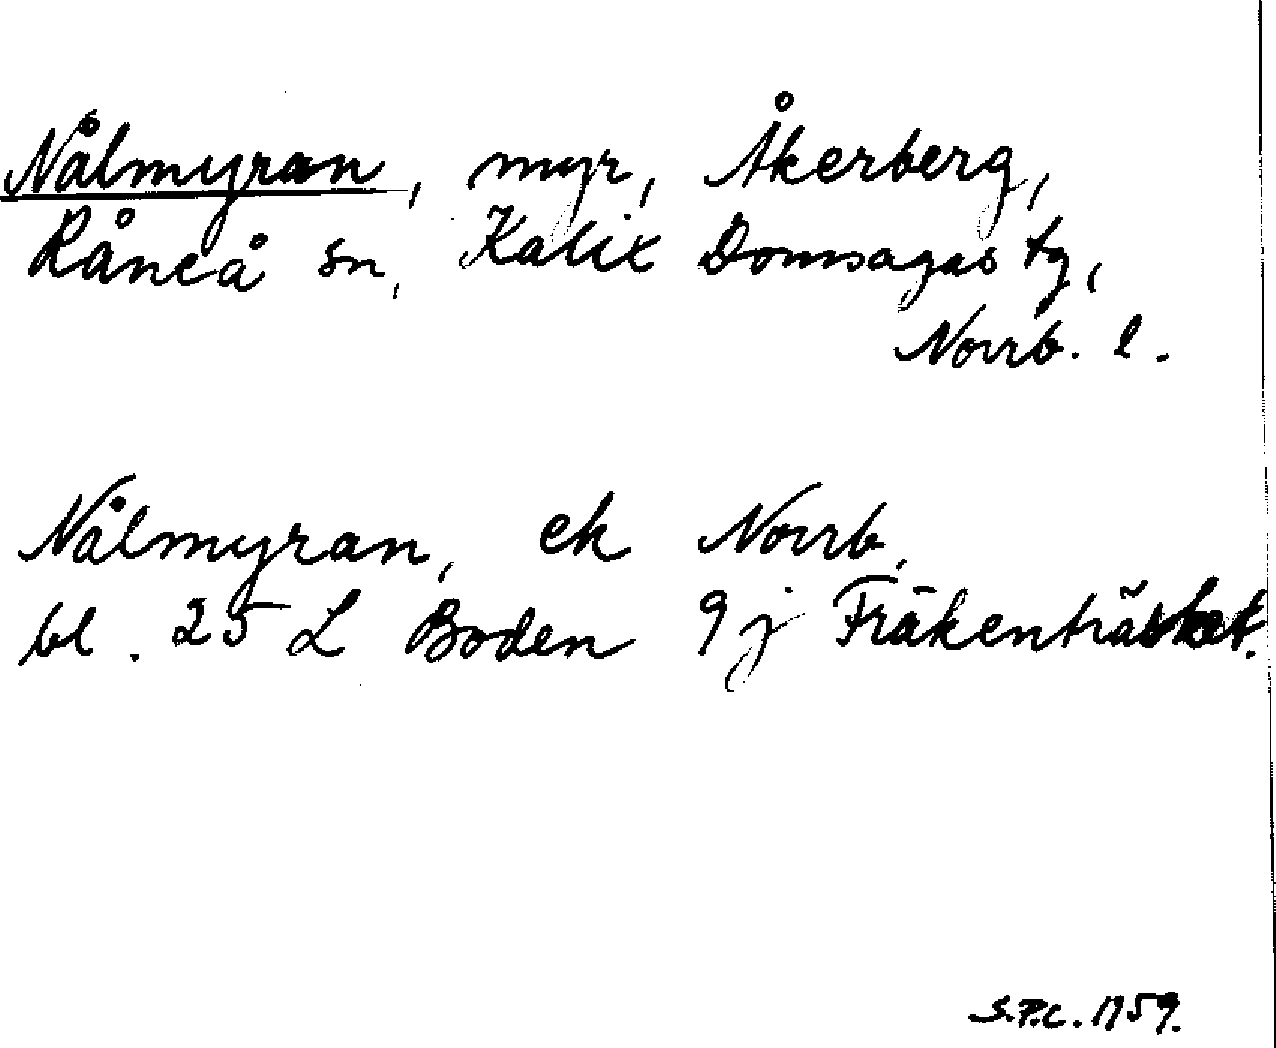 Nålmyran, myr, Åkerberg,
Råneå sn, Kalix Domsagas tg,
Norrb. l.
Nålmyran, ek Norrb,
bl. 25 L Boden 9 j Fräkenträsket.
S.P.C. 1959.